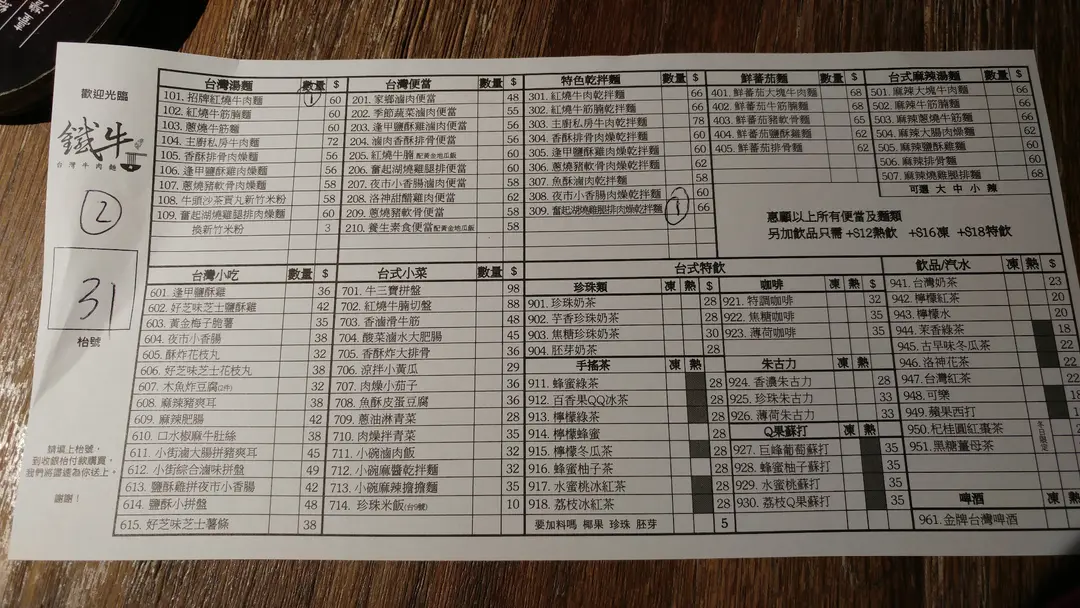 歡迎光臨
鐵牛
台灣牛肉麵
2
31
枱號
請填上枱號，
到收銀枱付款購買，
我們將盡速為你送上。
謝謝！
台灣湯麵 數量 $
101. 招牌紅燒牛肉麵 1 60
102. 紅燒牛筋腩麵 60
103. 蔥燒牛筋麵 60
104. 主廚私房牛肉麵 72
105. 香酥排骨肉燥麵 56
106. 逢甲鹽酥雞肉燥麵 56
107. 蔥燒豬軟骨肉燥麵 58
108. 牛頭沙茶貢丸新竹米粉 58
109. 奮起湖燒雞腿排肉燥麵 60
換新竹米粉 3
台灣便當 數量 $
201. 家鄉滷肉便當 48
202. 季節蔬菜滷肉便當 56
203. 逢甲鹽酥雞滷肉便當 56
204. 滷肉香酥排骨便當 56
205. 紅燒牛腩 配黃金地瓜飯 60
206. 奮起湖燒雞腿排便當 60
207. 夜市小香腸滷肉便當 58
208. 洛神甜醋雞肉便當 62
209. 蔥燒豬軟骨便當 58
210. 養生素食便當配黃金地瓜飯 58
特色乾拌麵 數量 $
301. 紅燒牛肉乾拌麵 66
302. 紅燒牛筋腩乾拌麵 66
303. 主廚私房牛肉乾拌麵 78
304. 香酥排骨肉燥乾拌麵 60
305. 逢甲鹽酥雞肉燥乾拌麵 60
306. 蔥燒豬軟骨肉燥乾拌麵 62
307. 魚酥滷肉乾拌麵 58
308. 夜市小香腸肉燥乾拌麵 60
309. 奮起湖燒雞腿排肉燥乾拌麵 1 66
鮮蕃茄麵 數量 $
401. 鮮蕃茄大塊牛肉麵 68
402. 鮮蕃茄牛筋腩麵 68
403. 鮮蕃茄豬軟骨麵 65
404. 鮮蕃茄鹽酥雞麵 62
405. 鮮蕃茄排骨麵 62
台式麻辣湯麵 數量 $
501. 麻辣大塊牛肉麵 66
502. 麻辣牛筋腩麵 66
503. 麻辣蔥燒豬軟骨麵 62
504. 麻辣大腸肉燥麵 60
505. 麻辣鹽酥雞肉燥麵 60
506. 麻辣排骨麵 60
507. 麻辣燒雞腿排肉燥麵 68
可選 大 中 小 辣
惠顧以上所有便當及麵類
另加飲品只需 +$12熱飲 +$16凍 +$18特飲
台灣小吃 數量 $
601. 逢甲鹽酥雞 36
602. 好芝味芝士鹽酥雞 42
603. 黃金梅子脆薯 35
604. 夜市小香腸 38
605. 酥炸花枝丸 32
606. 好芝味芝士花枝丸 38
607. 木魚炸豆腐(2件) 32
608. 麻辣豬爽耳 38
609. 麻辣肥腸 42
610. 口水椒麻牛肚絲 38
611. 小街滷大腸拼豬爽耳 45
612. 小街綜合滷味拼盤 49
613. 鹽酥雞拼夜市小香腸 42
614. 鹽酥小拼盤 48
615. 好芝味芝士薯條 38
台式小菜 數量 $
701. 牛三寶拼盤 98
702. 紅燒牛腩切盤 88
703. 香滷滑牛筋 48
704. 酸菜滷水大肥腸 45
705. 香酥炸大排骨 36
706. 涼拌小黃瓜 29
707. 肉燥小茄子 36
708. 魚酥皮蛋豆腐 36
709. 蔥油淋青菜 28
710. 肉燥拌青菜 35
711. 小碗滷肉飯 32
712. 小碗麻醬乾拌麵 32
713. 小碗麻辣擔擔麵 35
714. 珍珠米飯(台9號) 10
台式特飲
珍珠類 凍 熱 $
901. 珍珠奶茶 28
902. 芋香珍珠奶茶 28
903. 焦糖珍珠奶茶 30
904. 胚芽奶茶 28
手搖茶 凍 熱
911. 蜂蜜綠茶 28
912. 百香果QQ冰茶 28
913. 檸檬綠茶 28
914. 檸檬蜂蜜 28
915. 檸檬冬瓜茶 28
916. 蜂蜜柚子茶 28
917. 水蜜桃冰紅茶 28
918. 荔枝冰紅茶 28
要加料嗎 椰果 珍珠 胚芽 5
咖啡 凍 熱 $
921. 特調咖啡 32
922. 焦糖咖啡 35
923. 薄荷咖啡 35
朱古力 凍 熱
924. 香濃朱古力 33
925. 珍珠朱古力 33
926. 薄荷朱古力 33
Q果蘇打 凍 熱
927. 巨峰葡萄蘇打 35
928. 蜂蜜柚子蘇打 35
929. 水蜜桃蘇打 35
930. 荔枝Q果蘇打 35
飲品/汽水 凍 熱 $
941. 台灣奶茶 23
942. 檸檬紅茶 20
943. 檸檬水 20
944. 茉香綠茶 18
945. 古早味冬瓜茶 22
946. 洛神花茶 22
947. 台灣紅茶 22
948. 可樂 18
949. 蘋果西打
950. 杞桂圓紅棗茶
951. 黑糖薑母茶
冬日限定
啤酒 凍 熱
961. 金牌台灣啤酒